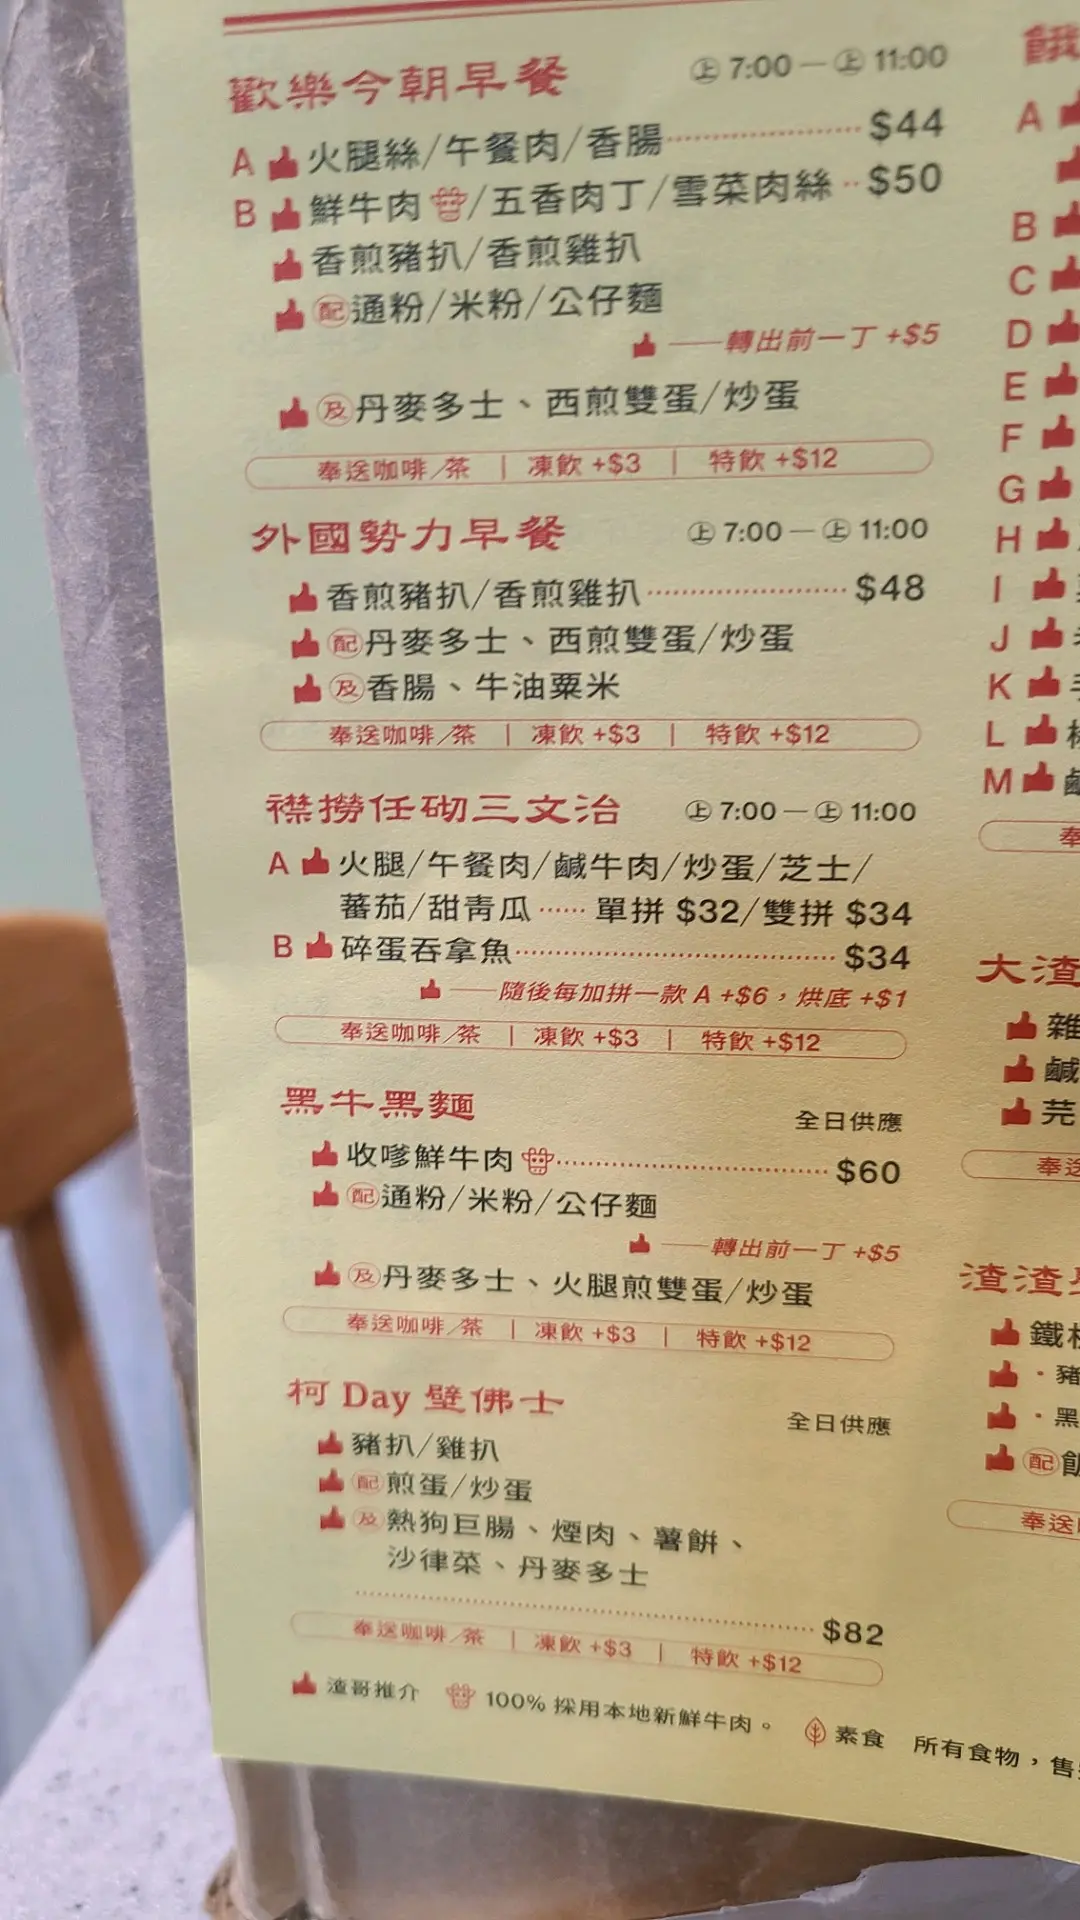 歡樂今朝早餐 上 7:00 — 上 11:00
A 火腿絲/午餐肉/香腸 $44
B 鮮牛肉/五香肉丁/雪菜肉絲 $50
香煎豬扒/香煎雞扒
配 通粉/米粉/公仔麵
——轉出前一丁 +$5
及 丹麥多士、西煎雙蛋/炒蛋
奉送咖啡/茶 | 凍飲 +$3 | 特飲 +$12
外國勢力早餐 上 7:00 — 上 11:00
香煎豬扒/香煎雞扒 $48
配 丹麥多士、西煎雙蛋/炒蛋
及 香腸、牛油粟米
奉送咖啡/茶 | 凍飲 +$3 | 特飲 +$12
襟撈任砌三文治 上 7:00 — 上 11:00
A 火腿/午餐肉/鹹牛肉/炒蛋/芝士/
蕃茄/甜青瓜 單拼 $32/雙拼 $34
B 碎蛋吞拿魚 $34
——隨後每加拼一款 A +$6，烘底 +$1
奉送咖啡/茶 | 凍飲 +$3 | 特飲 +$12
黑牛黑麵 全日供應
收嗲鮮牛肉 $60
配 通粉/米粉/公仔麵
——轉出前一丁 +$5
及 丹麥多士、火腿煎雙蛋/炒蛋
奉送咖啡/茶 | 凍飲 +$3 | 特飲 +$12
柯 Day 壁佛士 全日供應
豬扒/雞扒
配 煎蛋/炒蛋
及 熱狗巨腸、煙肉、薯餅、
沙律菜、丹麥多士
$82
奉送咖啡/茶 | 凍飲 +$3 | 特飲 +$12
渣哥推介 100% 採用本地新鮮牛肉。 素食 所有食物，售
餓
A
B
C
D
E
F
G
H
I
J
K
L
M
奉
大渣
雜
鹹
芫
奉送
渣渣
鐵
・豬
・黑
配 飯
奉送